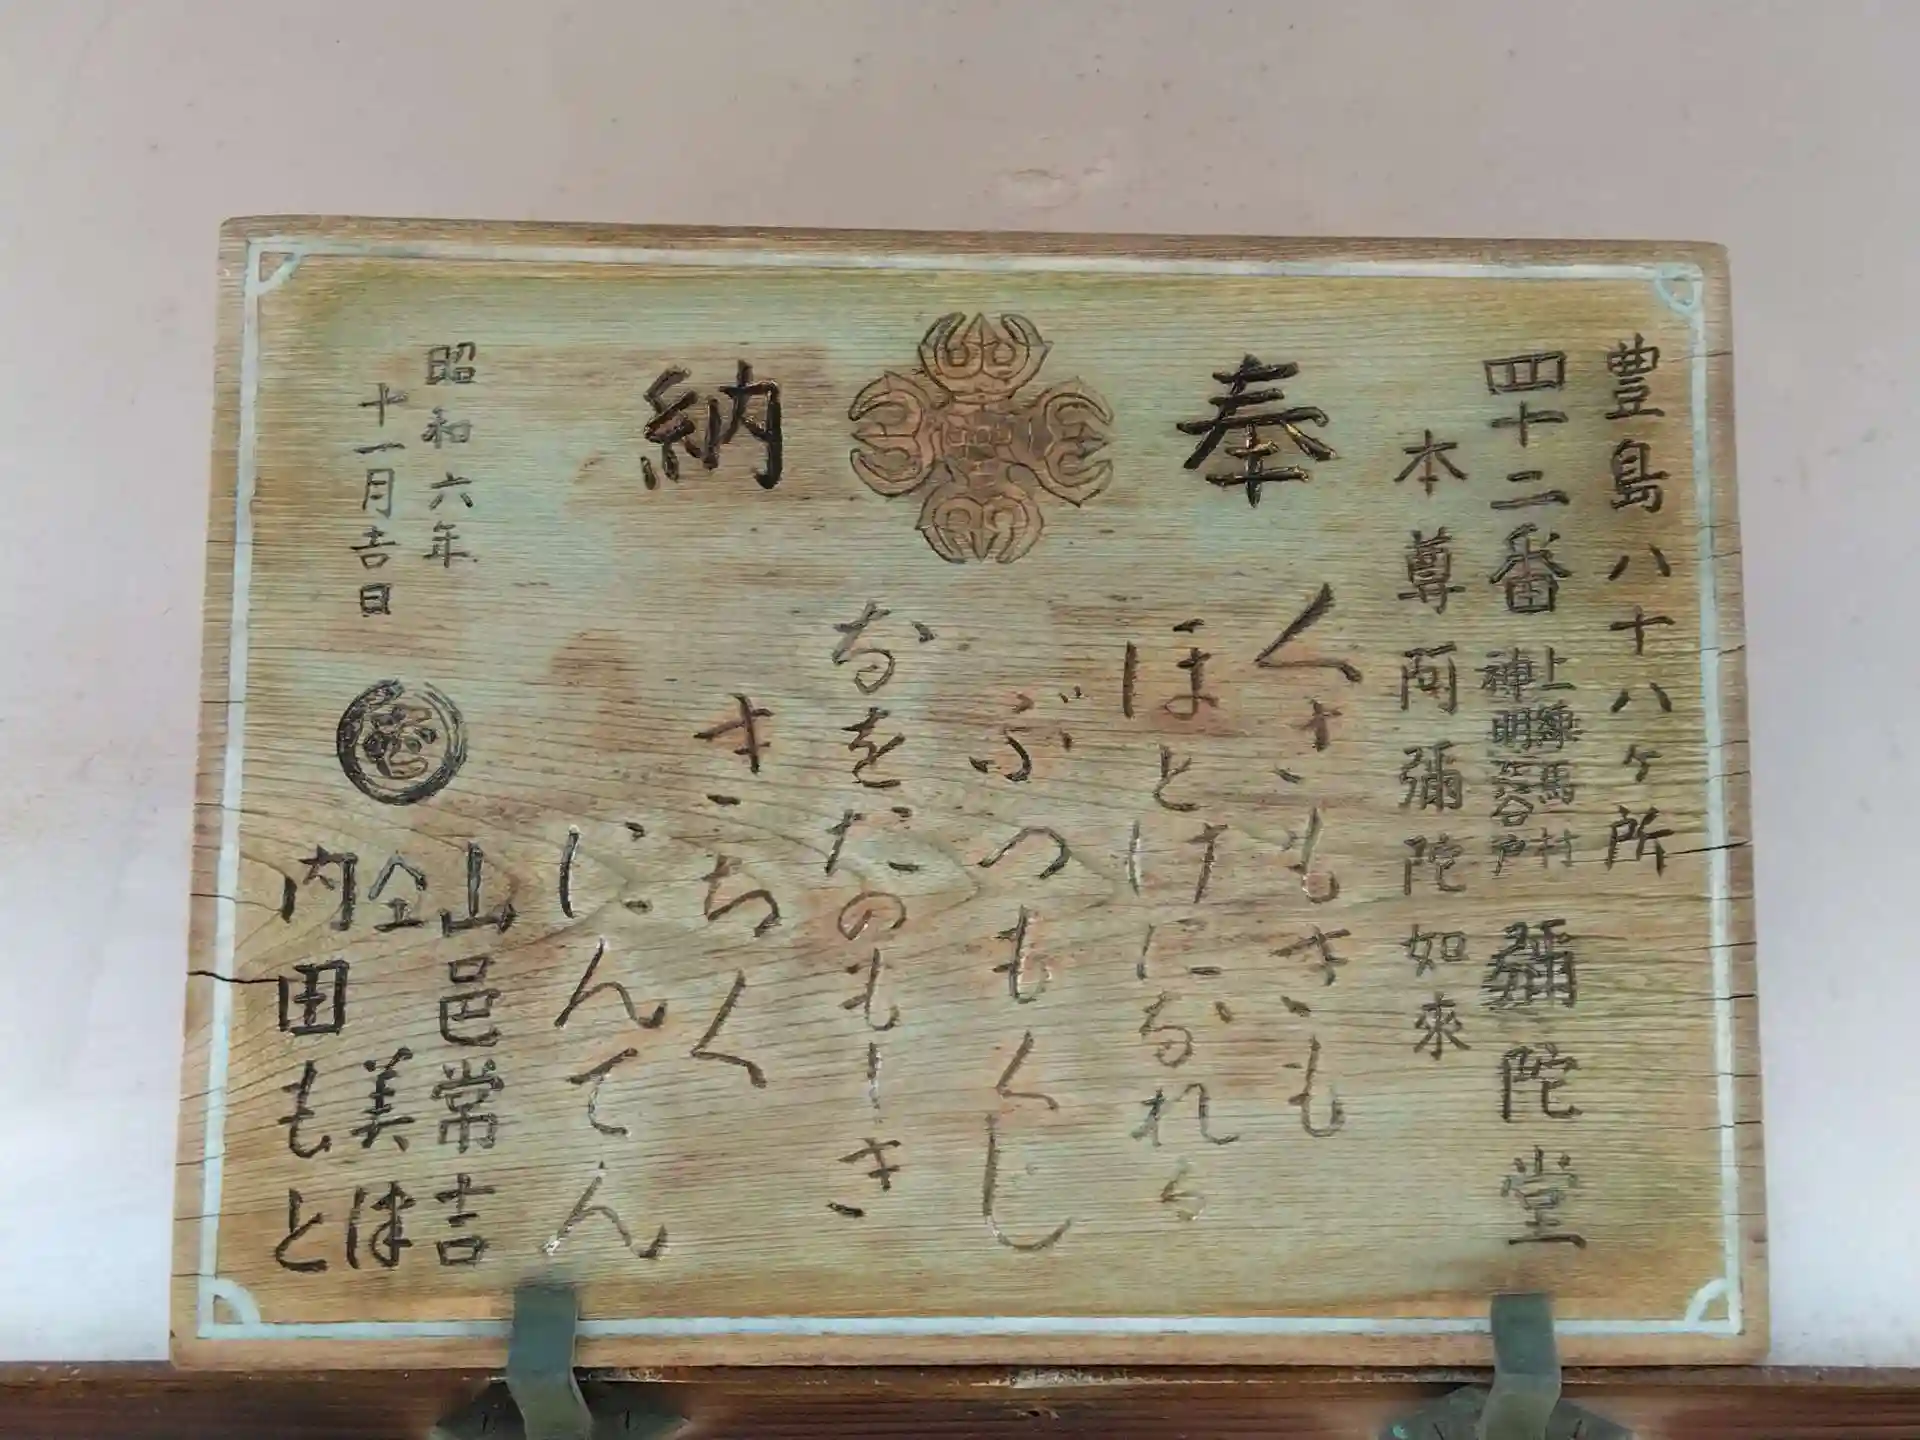 豊島八十八ヶ所
四十二番 上練馬村 神明ヶ谷戸 彌陀堂
本尊阿彌陀如來
奉納
くさもきも
ほとけになれる
ぶつもくじ
なをたのもしき
きちく
じんてん
昭和六年
十一月吉日
山邑常吉
仝美津
内田もと